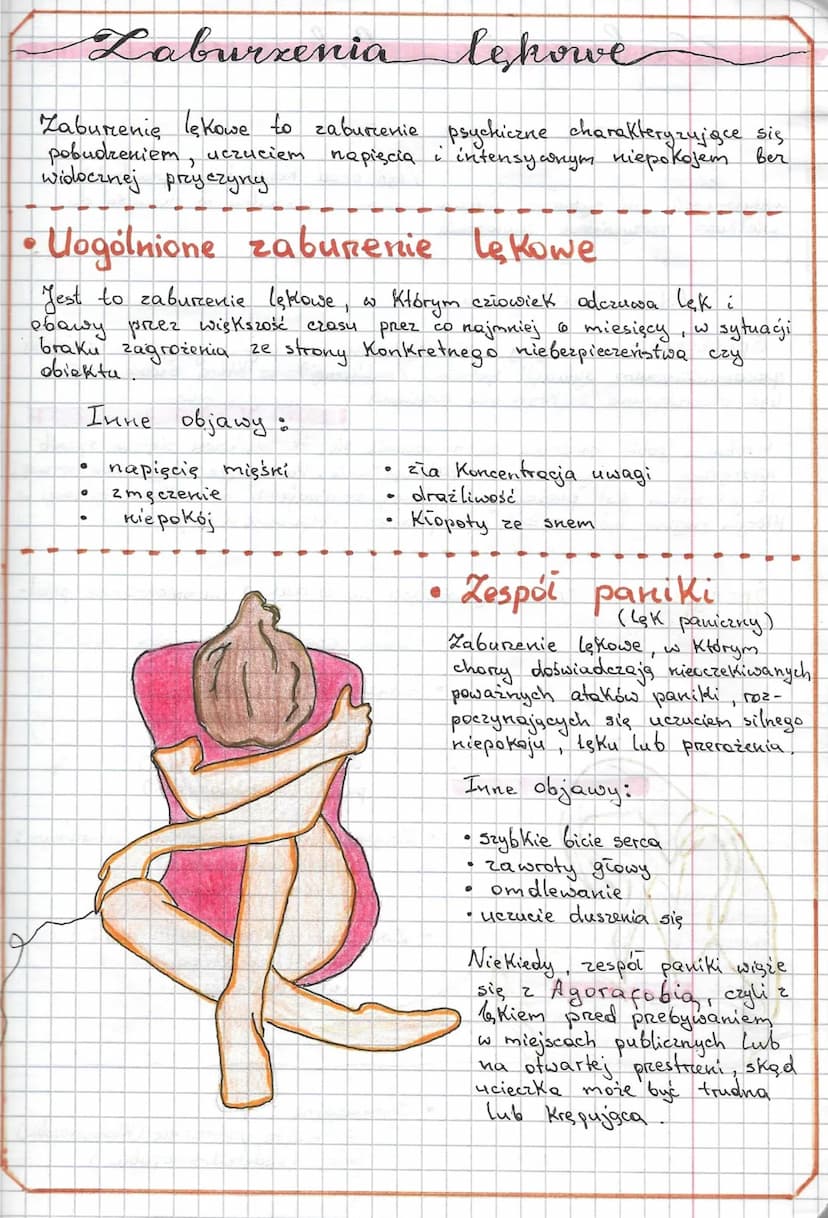 Zaburzenia lękowe
Zaburzenie lękowe to zaburzenie psychiczne charakteryzujące się
pobudzeniem, uczuciem napięcia i intensywnym niepokojem bez
widocznej przyczyny
• Uogólnione zaburzenie lękowe
Jest to zaburzenie lękowe, w którym człowiek odczuwa lęk i
obawy przez większość czasu przez co najmniej 6 miesięcy, w sytuacji
braku zagrożenia ze strony konkretnego niebezpieczeństwa czy
obiektu.
Inne objawy:
• napięcie mięśni
• zmęczenie
• niepokój
• zła koncentracja uwagi
• drażliwość
• kłopoty ze snem
• Zespół paniki
(lęk paniczny)
Zaburzenie lękowe, w którym
chory doświadczają nieoczekiwanych
poważnych ataków paniki, roz-
poczynających się uczuciem silnego
niepokoju, lęku lub przerażenia.
Inne objawy:
• szybkie bicie serca
• zawroty głowy
• omdlewanie
• uczucie duszenia się
Niekiedy, zespół paniki wiąże
się z Agorafobią, czyli z
lękiem przed przebywaniem
w miejscach publicznych lub
na otwartej przestrzeni, skąd
ucieczka może być trudna
lub krępująca.